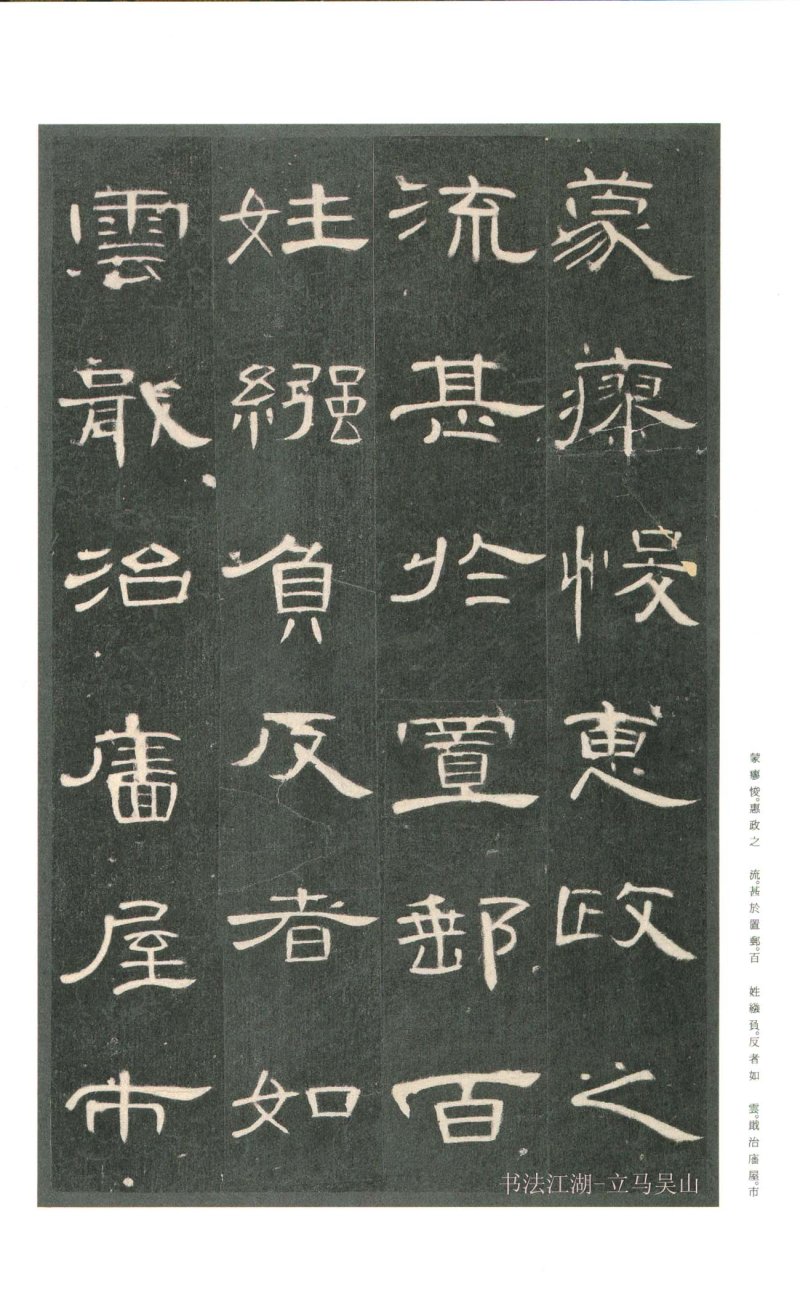 蒙瘳悛惠政之
流甚於置郵百
姓繈負反者如
雲戢治廧屋市
蒙瘳悛。惠政之 流。甚於置郵。百 姓繈負。反者如 雲。戢治廧屋。市
书法江湖-立马吴山